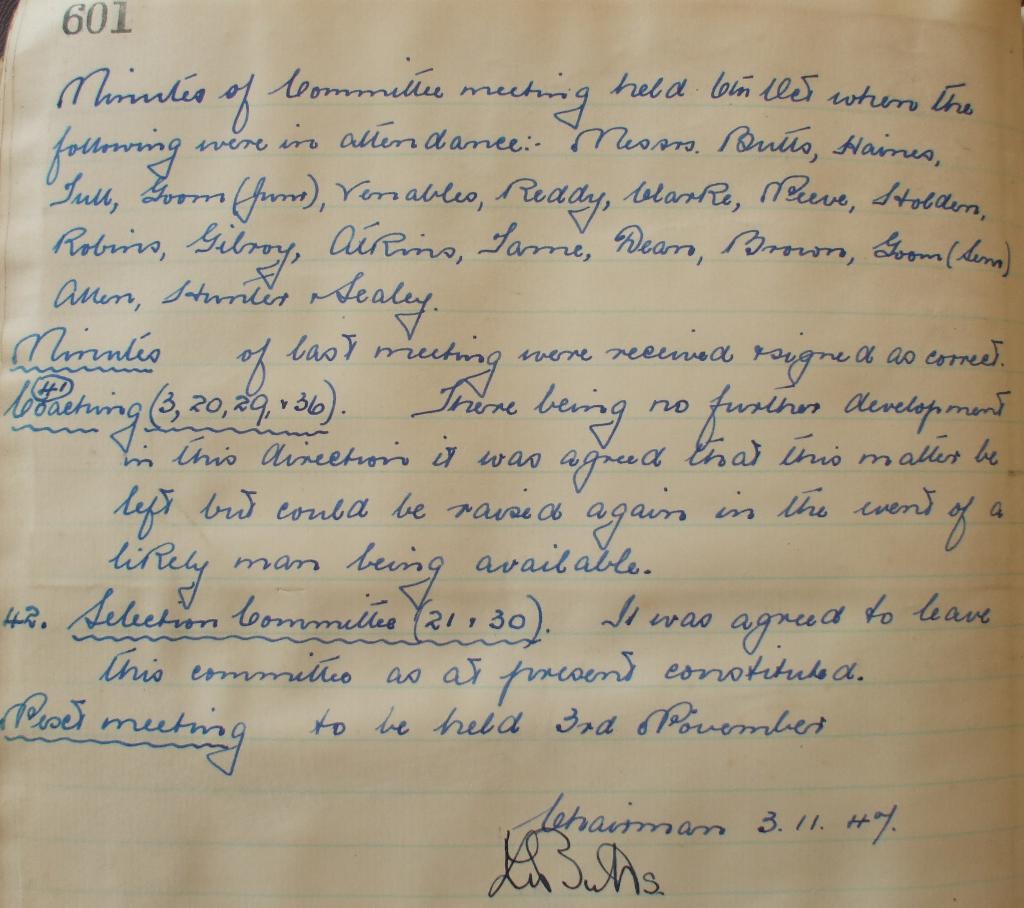 601
Minutes of Committee meeting held 6th Oct when the
following were in attendance:- Messrs. Butts, Haines,
Tull, Goom (Junr), Venables, Reddy, Clarke, Neeve, Holden,
Robins, Gilroy, Atkins, Tame, Dean, Brown, Goom (Senr)
Allen, Hunter & Sealey.
Minutes of last meeting were received & signed as correct.
41
Coaching (3, 20, 29, & 36). There being no further development
in this direction it was agreed that this matter be
left but could be raised again in the event of a
likely man being available.
42. Selection Committee (21 & 30). It was agreed to leave
this committee as at present constituted.
Next meeting to be held 3rd November
Chairman 3.11.47.
Butts.